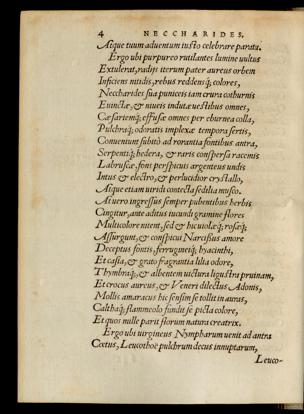 4 NECCHARIDES.
Atque tuum aduentum iusto celebrare paratu.
Ergo ubi purpureo rutilantes lumine uultus
Extulerat, radijs iterum pater aureus orbem
Inficiens nitidis, rebus reddensq́; colores,
Neccharides sua puniceis tam crura cothurnis
Euinctæ, & niueis indutæ uestibus omnes,
Cæsariemq́; effusæ omnes per eburnea colla,
Pulchraq́; odoratis implexæ tempora sertis,
Conueniunt subitò ad rorantia fontibus antra,
Serpentiq́; hedera, & raris conspersa racemis
Labruscæ, fons perspicuis argenteus undis
Intus & electro, & perlucidior crystallo,
Atque etiam uiridi contecta sedilia musco.
At uero ingressus semper pubentibus herbis
Cingitur, ante aditus iucundi gramine flores
Multicolore nitent, sed & hic uiolæq́; rosæq́;
Assurgunt, & conspicui Narcissus amore
Deceptus fontis, ferrugineiq́; hyacinthi,
Et casia, & grato fragrantia lilia odore,
Thymbraq́;, & albentem uictura ligustra pruinam,
Et crocus aureus, & Veneri dilectus Adonis,
Mollis amaracus hic sensim se tollit in auras,
Calthaq́; flammeolo fundit se picta colore,
Et quos mille parit florum natura creatrix.
Ergo ubi uirgineus Nympharum uenit ad antra
Cœtus, Leucothoë pulchrum decus innuptarum,
Leuco-